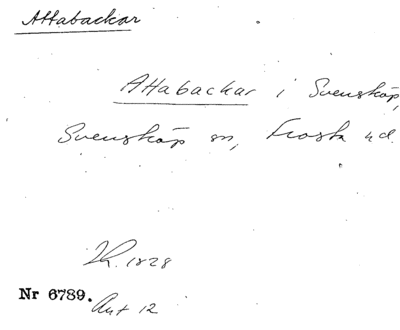 Attabackar
Attabackar i Svensköp,
Svensköp sn, Frosta hd.
Lh. 1828
Nr 6789.
Ant 12